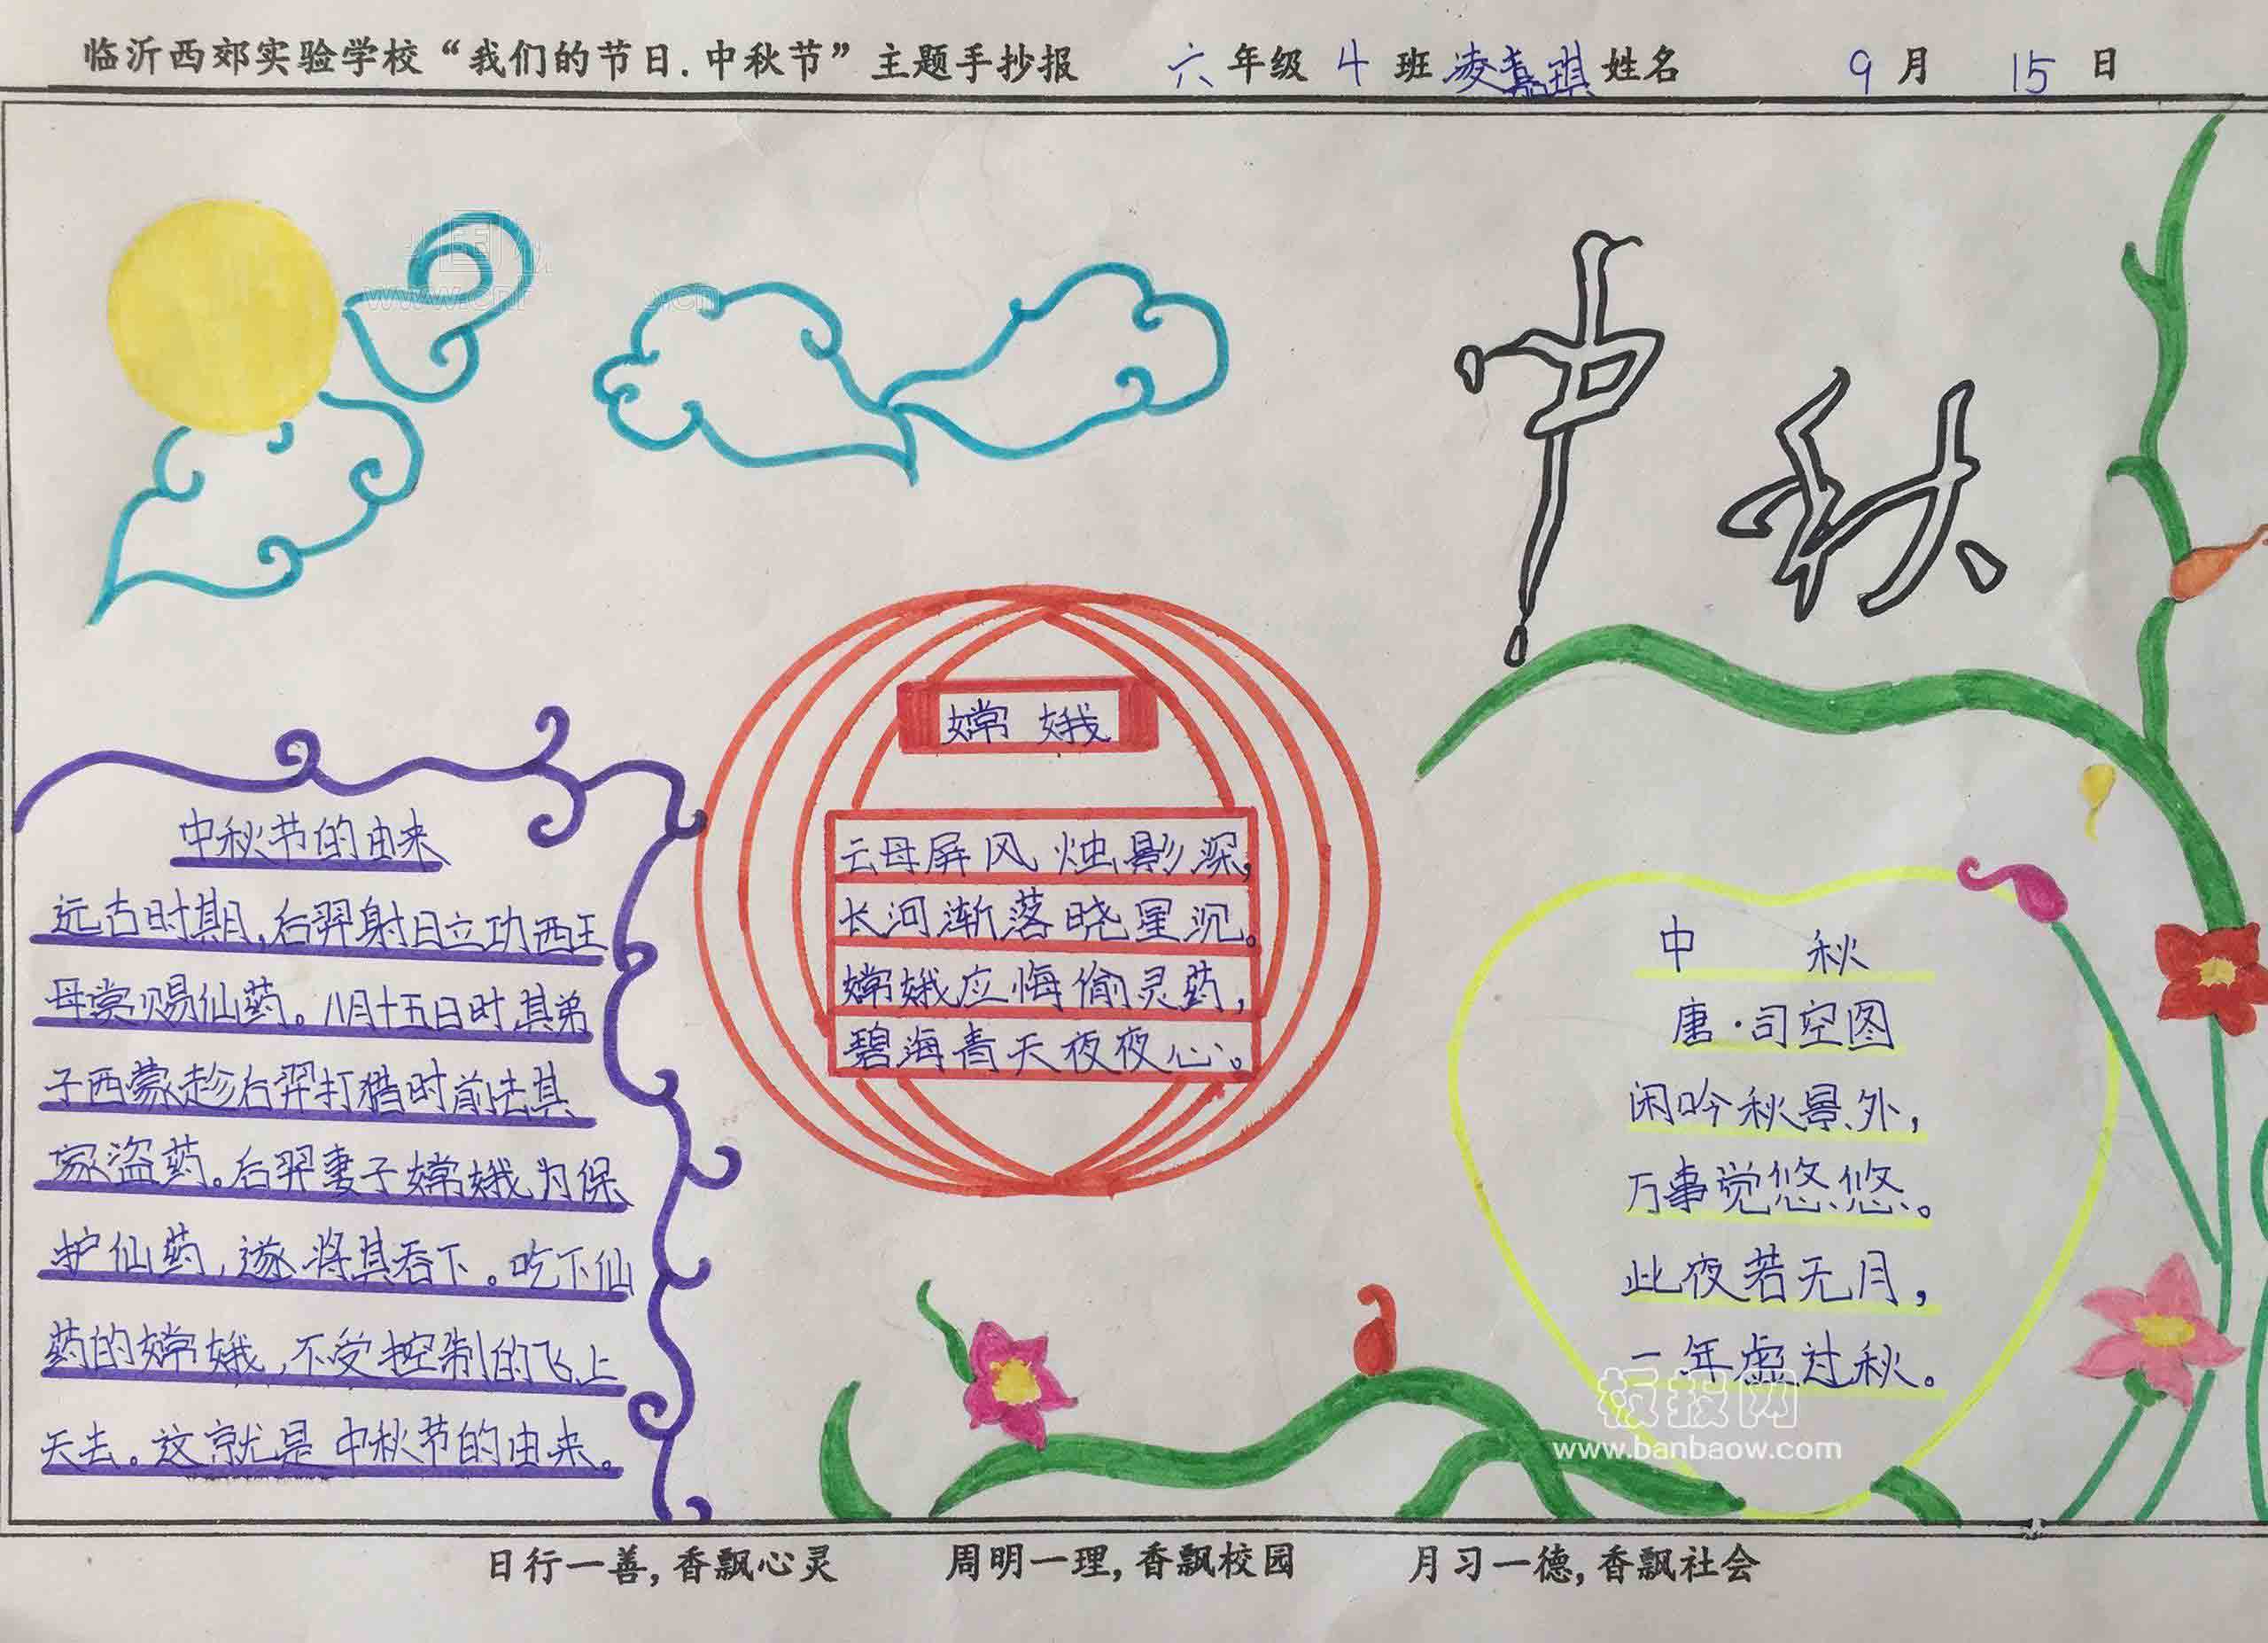 临沂西郊实验学校“我们的节日.中秋节”主题手抄报 六年级 4 班凌嘉琪姓名 9 月 15 日
中秋
中秋节的由来
远古时期,后羿射日立功西王
母赏赐仙药。八月十五日时,其弟
子西蒙趁后羿打猎时前去其
家盗药。后羿妻子嫦娥为保
护仙药,遂将其吞下。吃下仙
药的嫦娥,不受控制的飞上
天去。这就是中秋节的由来。
嫦娥
云母屏风烛影深,
长河渐落晓星沉。
嫦娥应悔偷灵药,
碧海青天夜夜心。
中秋
唐·司空图
闲吟秋景外,
万事觉悠悠。
此夜若无月,
一年虚过秋。
板报网
www.banbaow.com
日行一善,香飘心灵 周明一理,香飘校园 月习一德,香飘社会